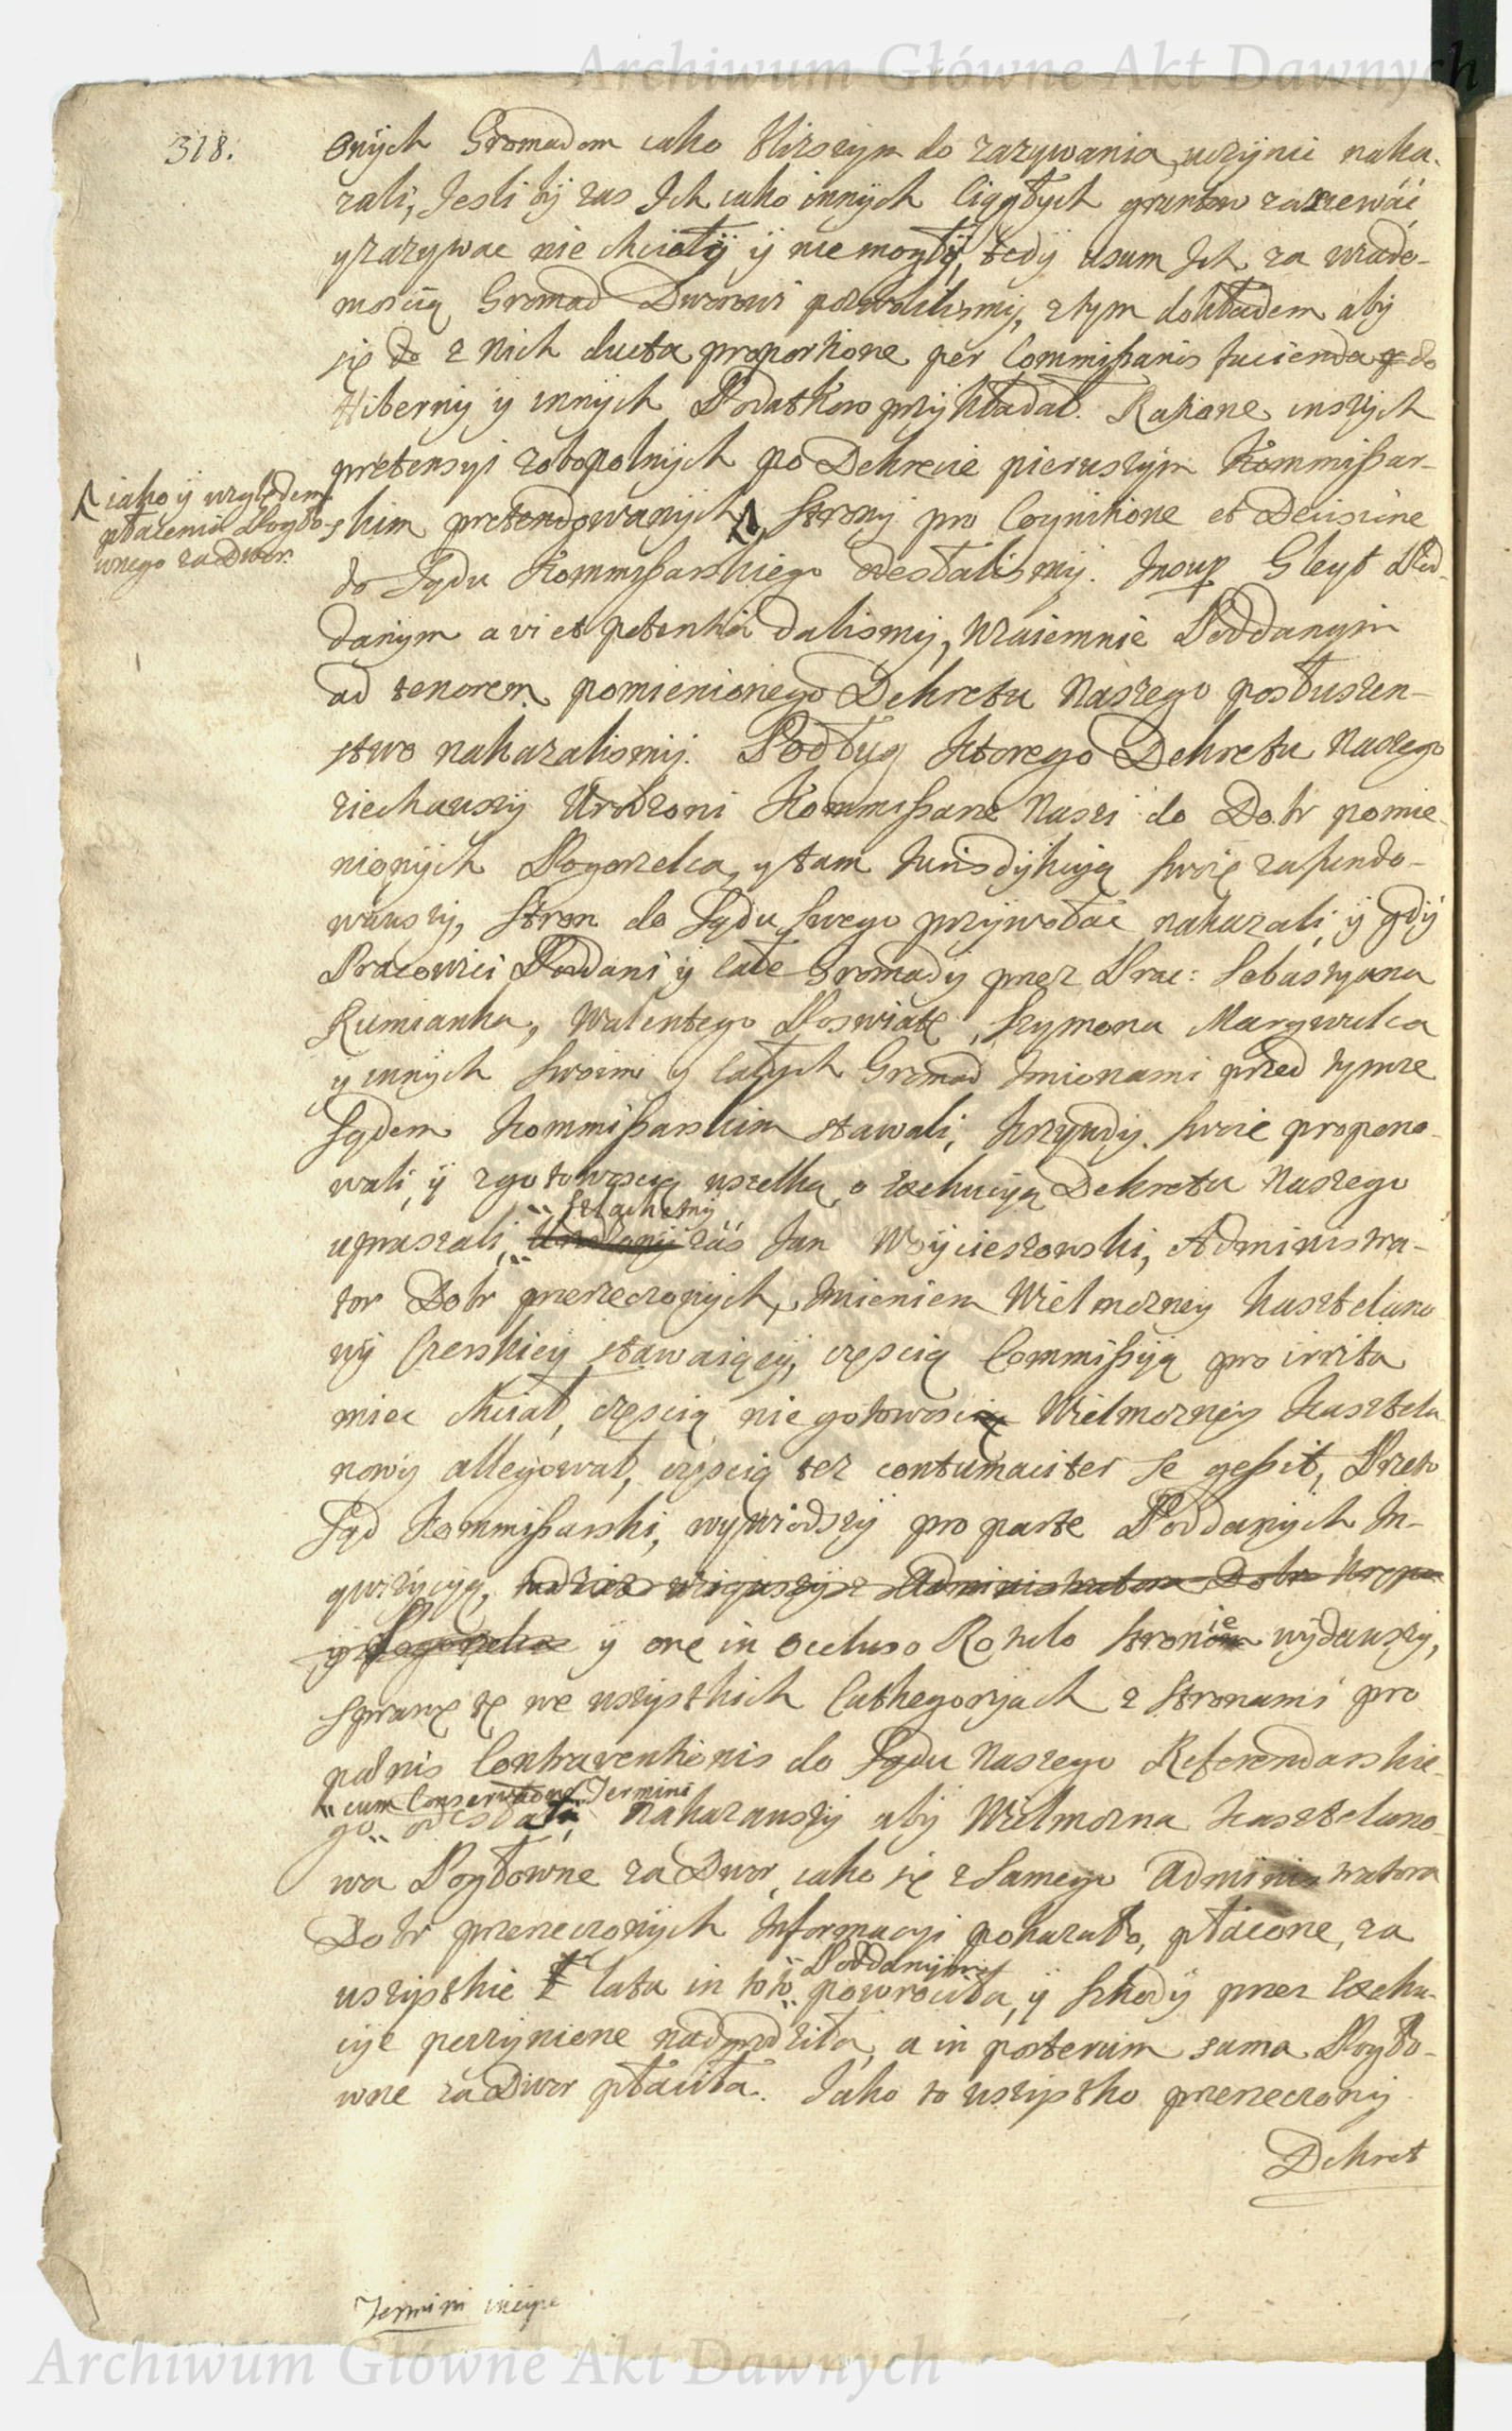 Archiwum Główne Akt Dawnych
318.
onych Gromadom iako bliższym do zazywania uczynić naka-
zali, Jesli by zas Ich iako innych ciągłych gruntow zasiewać
y zazywac nie chciały y nie mogły, tedy usum Ich za wiado-
mością Gromad Dworowi pozwolilismy, z tym dokładem aby
się do z nich ducta proportione per Commissarios facienda do
Hiberny y innych Podatkow przykładał. Ratione inszych
pretensyi zobopolnych po Dekrecie pierwszym Kommissar-
skim pretendowanych, Strony pro Cognitione et Decisione
iako y względem
płacenia Pogło-
wnego za Dwor.
do Sądu Kommissarskiego odesłalismy. Insup Gleyt Pod-
danym a vi et potentia dalismy, wzaiemnie Poddanym
ad tenorem pomienionego Dekretu Naszego posłuszen-
stwo nakazalismy. Podług ktorego Dekretu Naszego
ziechawszy Urodzoni Kommissarze Nasi do Dobr pomie-
nionych Pogorzelca, y tam Jurisdykcyą swoię zafundo-
wawszy, stron do Sądu swego przywołac nakazali, y gdy
Pracowici Poddani y całe Gromady przez Prac: Sebastyana
Rumianka, Walentego Poswiatę, Szymona Margwelca
y innych swoimi y całych Gromad Imionami przed tymze
Sądem Kommissarskim stawali, krzywdy swoie propono-
wali, y z gotowością wszelką o Exekucyą Dekretu Naszego
Szlachetny
upraszali, Urodzony zaś Jan Woycieszowski, Administra-
tor Dobr przerzeczonych, Imieniem Wielmozney Kasztelano-
wy Czerskiey stawaiący, częscią Commissyą pro irrita
miec chciał, częscią nie gotowoscią Wielmozney Kasztela-
nowy allegował, częscią tez contumaciter se gessit, Przeto
Sąd Kommissarski, wywiodszy pro parte Poddanych In-
qwizycyą, tudziez wziąwszy z Administratora Dobr
y Pogorzelca y onę in occluso Rotulo stronie wydawszy,
sprawę tę we wszystkich Cathegoryach z Stronami pro
pœnis Contraventionis do Sądu Naszego Referendarskie-
cum Conservatione Termini
go odesłała, nakazawszy aby Wielmozna Kasztelano-
wa Pogłowne za Dwor, iako się z Samego Administratora
Dobr przerzeczonych Informacyi pokazało, płacone, za
Poddanym
wszystkie lata in toto powrociła, y szkody przez Exeku-
cye poczynione nadgrodziła, a in posterum sama Pogło-
wne za Dwor płaciła. Jako to wszystko przerzeczony
Dekret
Termini
Archiwum Główne Akt Dawnych